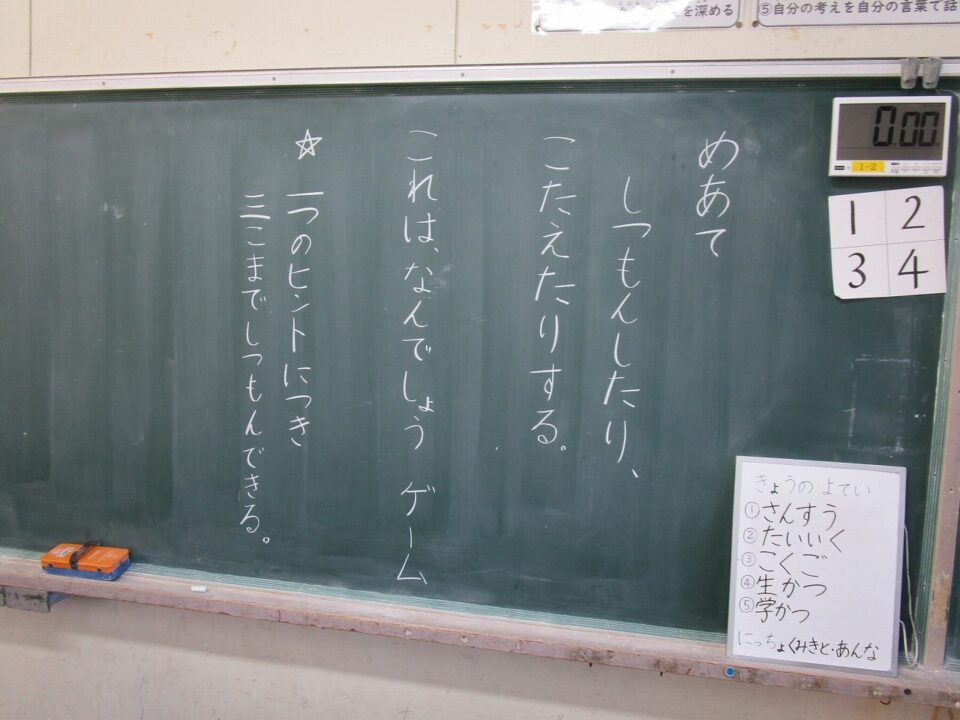 を深める
⑤自分の考えを自分の言葉で話
めあて
しつもんしたり、
こたえたりする。
これは、なんでしょう ゲーム
☆ 一つのヒントにつき
三こまでしつもんできる。
0:00
1-2
1 2
3 4
きょうの よてい
①さんすう
②たいいく
③こくご
④生かつ
⑤学かつ
にっちょくみきと・あんな